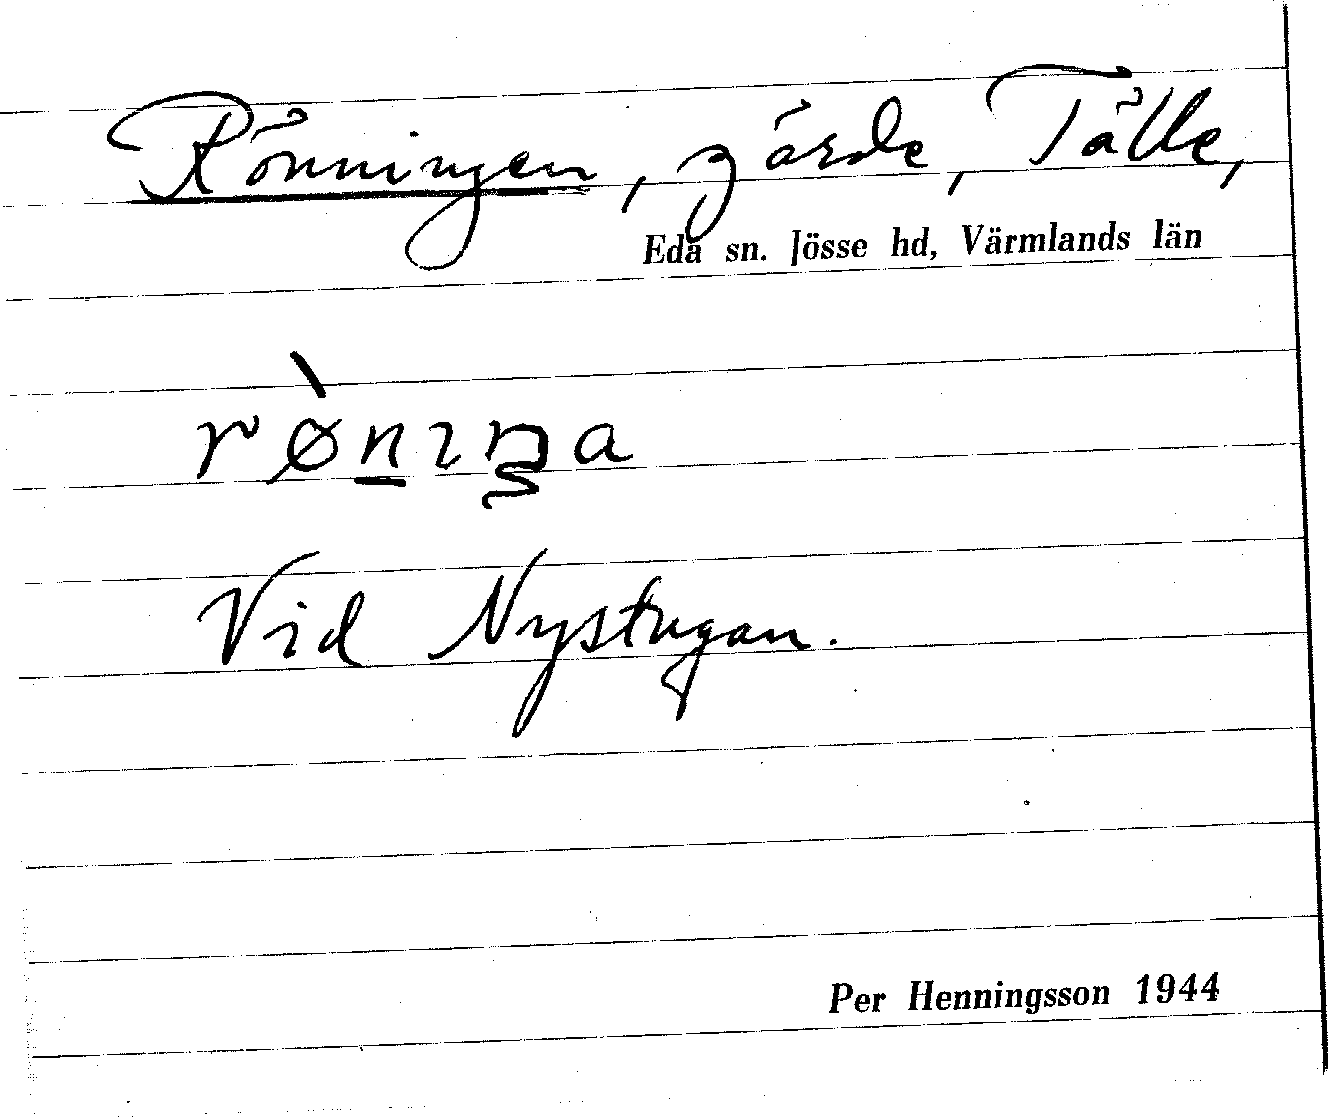 Rönningen, gärde, Tälle,
Eda sn. Jösse hd, Värmlands län
rø̀n̲ıŋa
Vid Nystugan.
Per Henningsson 1944